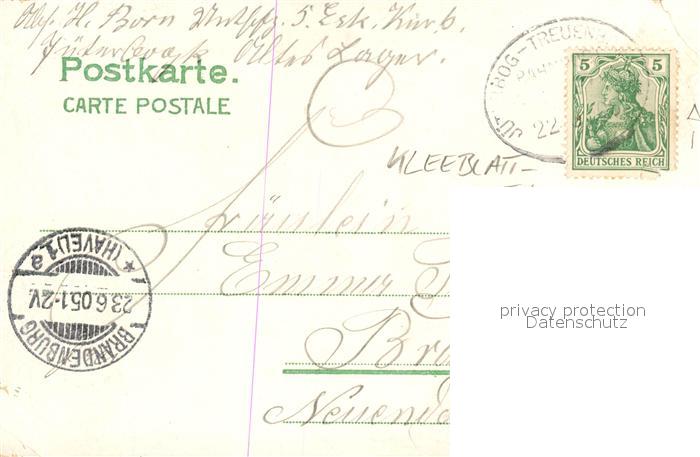 Abs. H. Born 5. Esk. Kür. 6.
Jüterbog Altes Lager.
Postkarte.
CARTE POSTALE
BOG-TREUEN
22
5 5
DEUTSCHES REICH
KLEEBLATT-
Fräulein
Emmy
Bra
Neuend
BRANDENBURG
(HAVEL) 1 a
23.6.05.1-2V.
privacy protection
Datenschutz